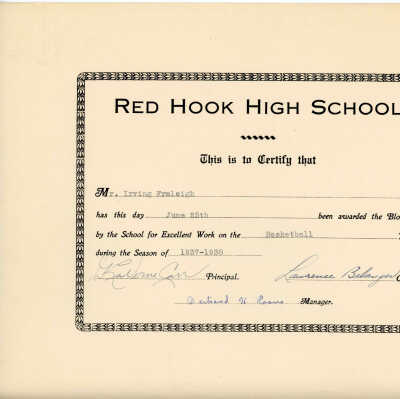 RED HOOK HIGH SCHOOL
This is to Certify that
Mr. Irving Fraleigh
has this day June 25th been awarded the Blo
by the School for Excellent Work on the Basketball
during the Season of 1937-1938
Principal. Lawrence Belanger
Manager.